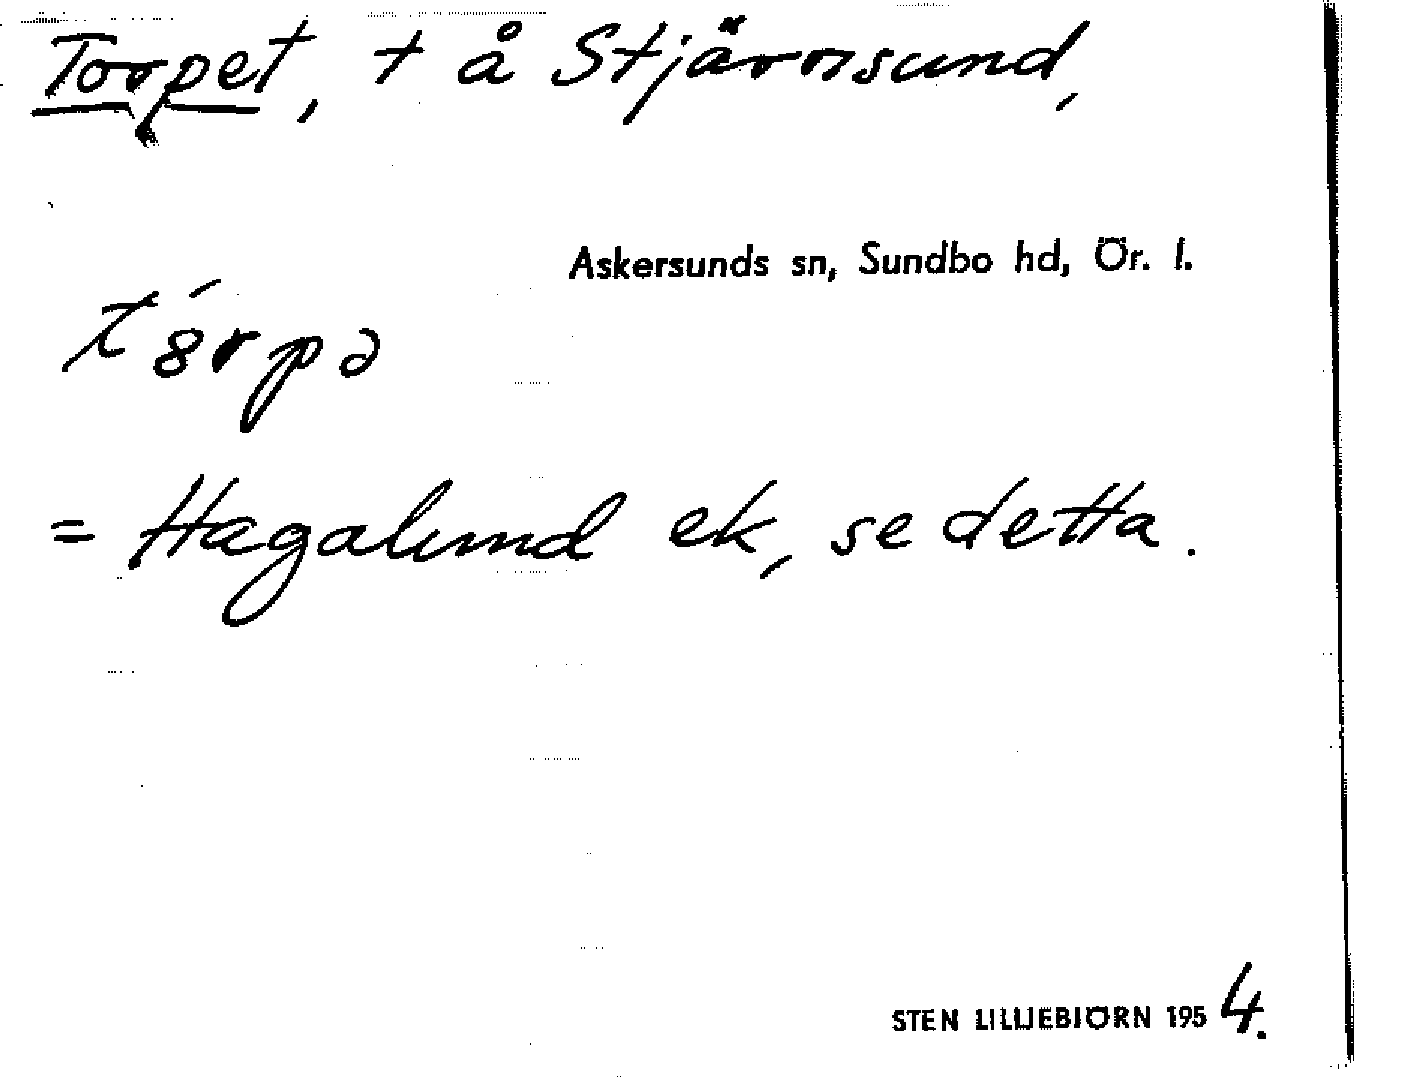 Torpet, t å Stjärnsund,
Askersunds sn, Sundbo hd, Ör. l.
t́8rpə
= Hagalund ek, se detta.
STEN LILLJEBJÖRN 1954.